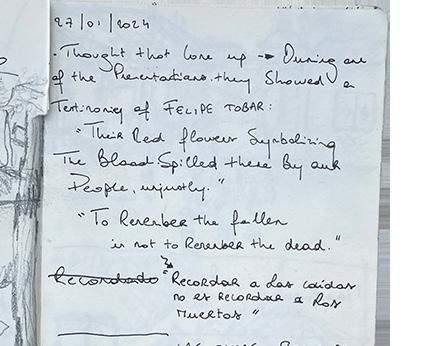 27/01/2024
- Thought that come up → During one
of the Presentations. they Showed a
Testimony of FELIPE TOBAR:
"Their Red flowers Symbolizing
The Blood Spilled there By our
People, unjustly."
"To Remember the fallen
is not to Remember the dead."
Recordando "Recordar a los caidos
no es Recordar a los
Muertos"